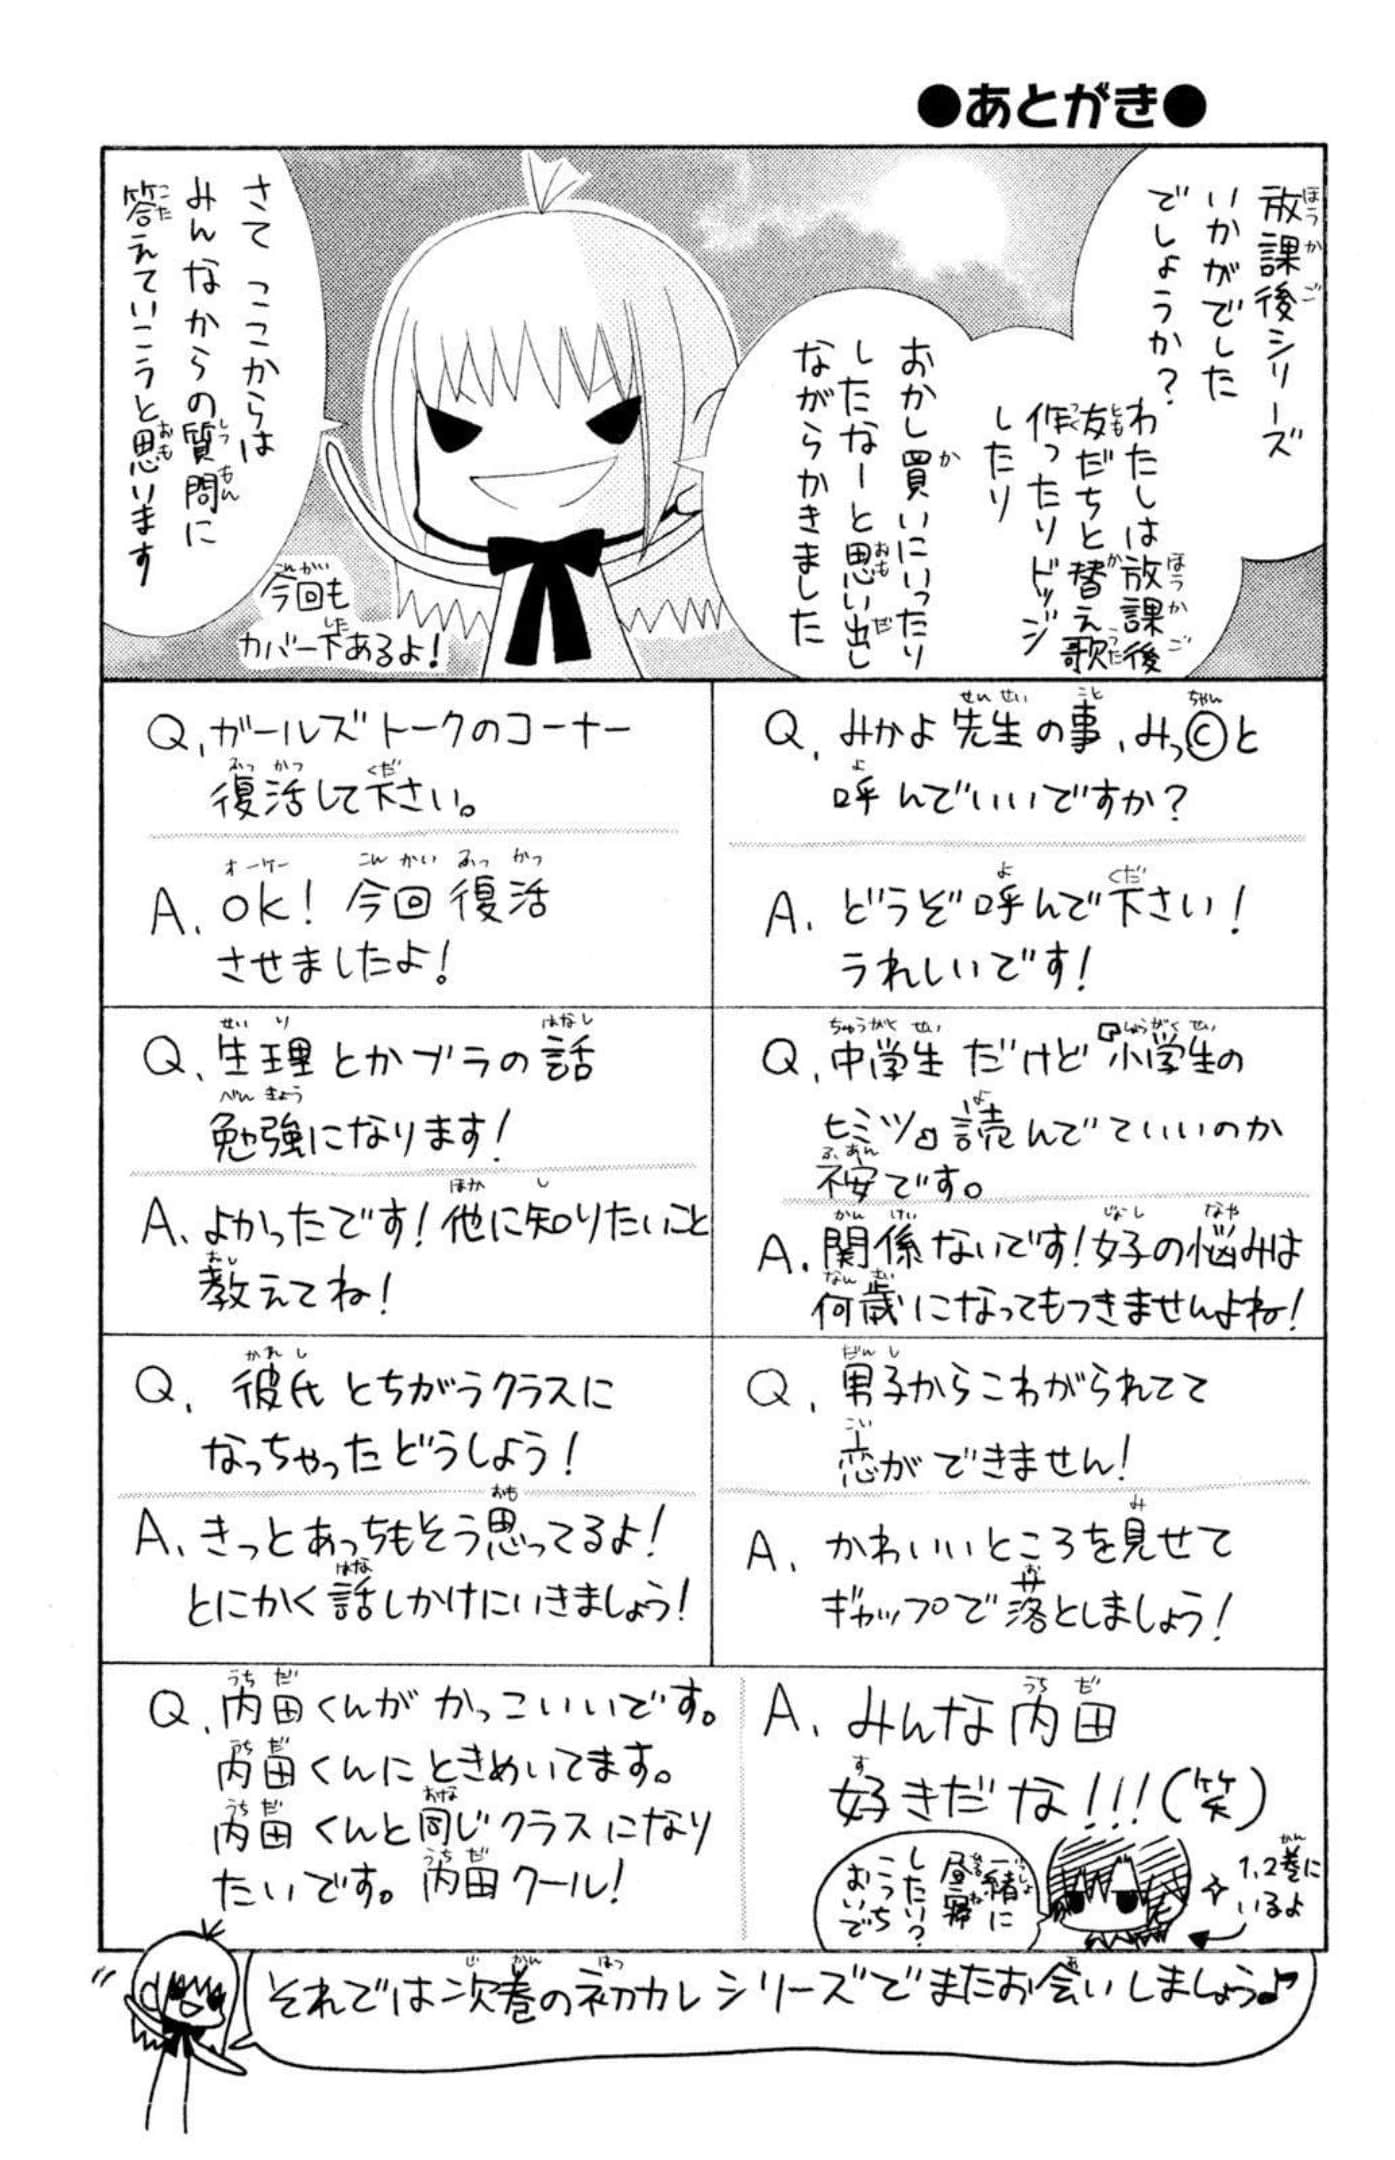 ●あとがき●
放課後シリーズ
いかがでした
でしょうか?
わたしは放課後
友だちと替え歌
作ったりドッジ
したり
おかし買いにいったり
したなーと思い出し
ながらかきました
さて ここからは
みんなからの質問に
答えていこうと思います
今回も
カバー下あるよ!
Q. みかよ先生の事、みっ©と
呼んでいいですか?
A. どうぞ呼んで下さい!
うれしいです!
Q. ガールズトークのコーナー
復活して下さい。
A. OK! 今回復活
させましたよ!
Q. 中学生だけど『小学生の
ヒミツ』読んでていいのか
不安です。
A. 関係ないです!女子の悩みは
何歳になってもつきませんよね!
Q. 生理とかブラの話
勉強になります!
A. よかったです!他に知りたいこと
教えてね!
Q. 男子からこわがられてて
恋ができません!
A. かわいいところを見せて
ギャップで落としましょう!
Q. 彼氏とちがうクラスに
なっちゃったどうしよう!
A. きっとあっちもそう思ってるよ!
とにかく話しかけにいきましょう!
Q. 内田くんがかっこいいです。
内田くんにときめいてます。
内田くんと同じクラスになり
たいです。内田クール!
A. みんな内田
好きだな!!!(笑)
一緒に
昼寝
したい?
こっち
おいで
1,2巻に
いるよ
それでは次巻の初カレシリーズでまたお会いしましょう♪